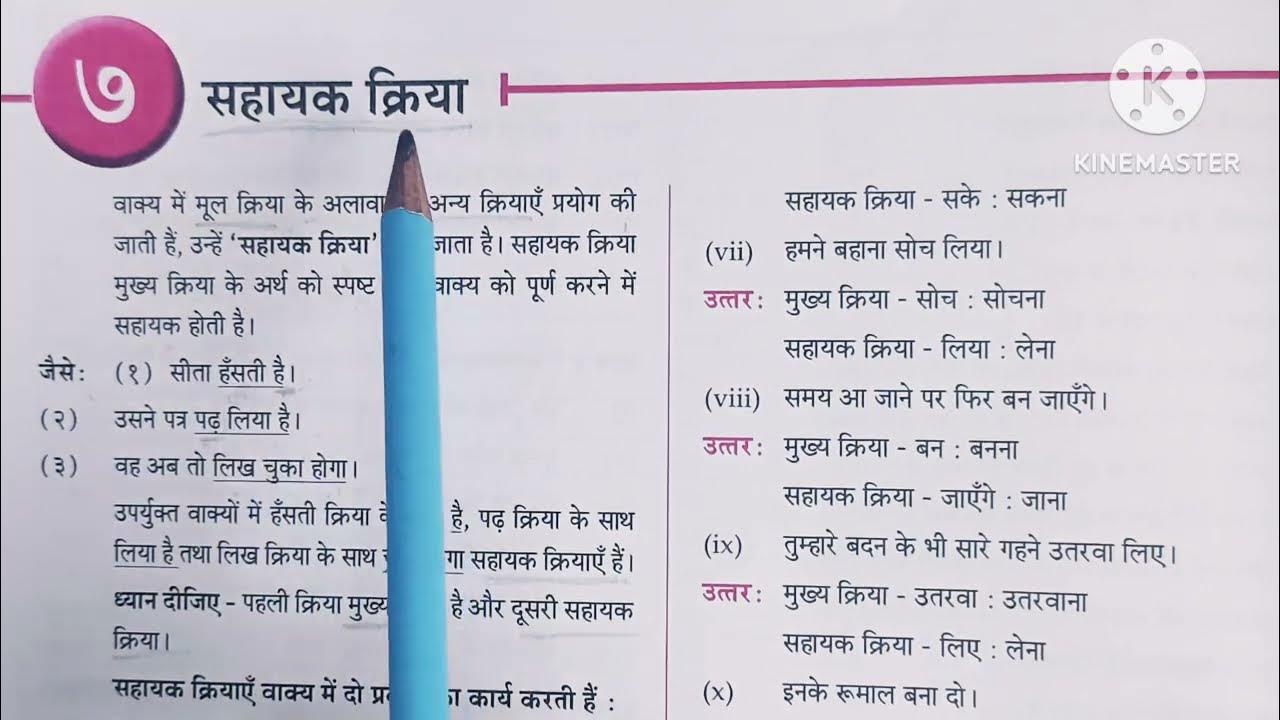 ७
सहायक क्रिया
K
KINEMASTER
वाक्य में मूल क्रिया के अलावा अन्य क्रियाएँ प्रयोग की
जाती हैं, उन्हें ‘सहायक क्रिया’ जाता है। सहायक क्रिया
मुख्य क्रिया के अर्थ को स्पष्ट वाक्य को पूर्ण करने में
सहायक होती है।
जैसे: (१) सीता हँसती है।
(२) उसने पत्र पढ़ लिया है।
(३) वह अब तो लिख चुका होगा।
उपर्युक्त वाक्यों में हँसती क्रिया है, पढ़ क्रिया के साथ
लिया है तथा लिख क्रिया के साथ सहायक क्रियाएँ हैं।
ध्यान दीजिए - पहली क्रिया मुख्य है और दूसरी सहायक
क्रिया।
सहायक क्रियाएँ वाक्य में दो कार्य करती हैं :
सहायक क्रिया - सके : सकना
(vii) हमने बहाना सोच लिया।
उत्तर: मुख्य क्रिया - सोच : सोचना
सहायक क्रिया - लिया : लेना
(viii) समय आ जाने पर फिर बन जाएँगे।
उत्तर: मुख्य क्रिया - बन : बनना
सहायक क्रिया - जाएँगे : जाना
(ix) तुम्हारे बदन के भी सारे गहने उतरवा लिए।
उत्तर: मुख्य क्रिया - उतरवा : उतरवाना
सहायक क्रिया - लिए : लेना
(x) इनके रूमाल बना दो।